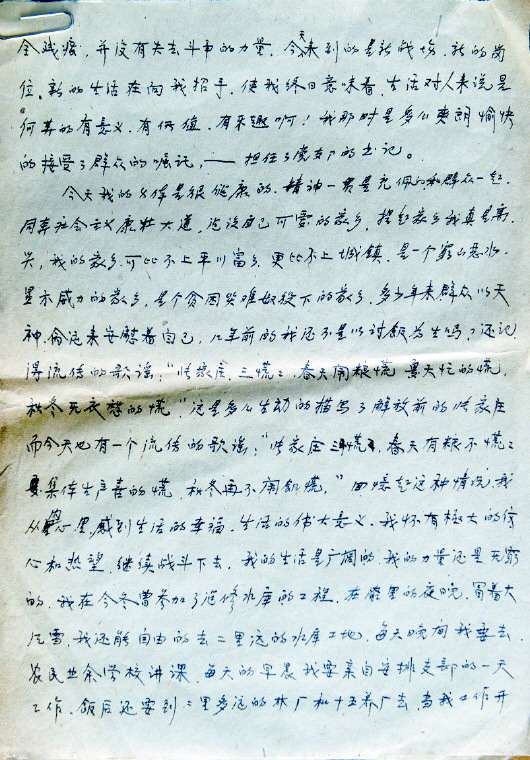 全残废，并没有失去斗争的力量。今天来到的是新战场，新的岗
位。新的生活在向我招手，使我终日意味着，生活对人来说是
何其的有意义，有价值，有乐趣啊！我那时是多么爽朗愉快
的接受了群众的嘱讬，——担任了党支部的书记。
今天我的身体是很健康的，精神一贯是充佩的和群众一起，
同奔社会主义康壮大道，建设自己可爱的家乡，提起家乡我真是高
兴，我的家乡，可比不上平川富乡，更比不上城镇，是一个穷山恶水，
显示威力的家乡，是个贫困灾难奴役下的家乡，多少年来群众以天
神，命运来安慰着自己，几年前的我还不是以讨饭为生吗，还记
得流传的歌谣："张家庄，三慌慌，春天闹粮慌，夏天忙的慌，
秋冬无衣愁的慌，"这是多么生动的描写了解放前的张家庄
而今天也有一个流传的歌谣："张家庄三不慌，春天有粮不慌，
夏集体生产喜的慌，秋冬再不闹饥慌，"回忆起这种情况，我
从内心里，感到生活的幸福，生活的伟大意义，我怀有极大的信
心和热望，继续战斗下去，我的生活是广阔的，我的力量还是无穷
的，我在今冬曾参加了建修水库的工程，在漆黑的夜晚，冒着大
风雪，我还能自由的去二里远的水库工地，每天晚间我要去
农民业余学校讲课，每天的早晨我要亲自安排支部的一天
工作，饭后还要到二里多远的林厂和十五养厂去，当我工作开